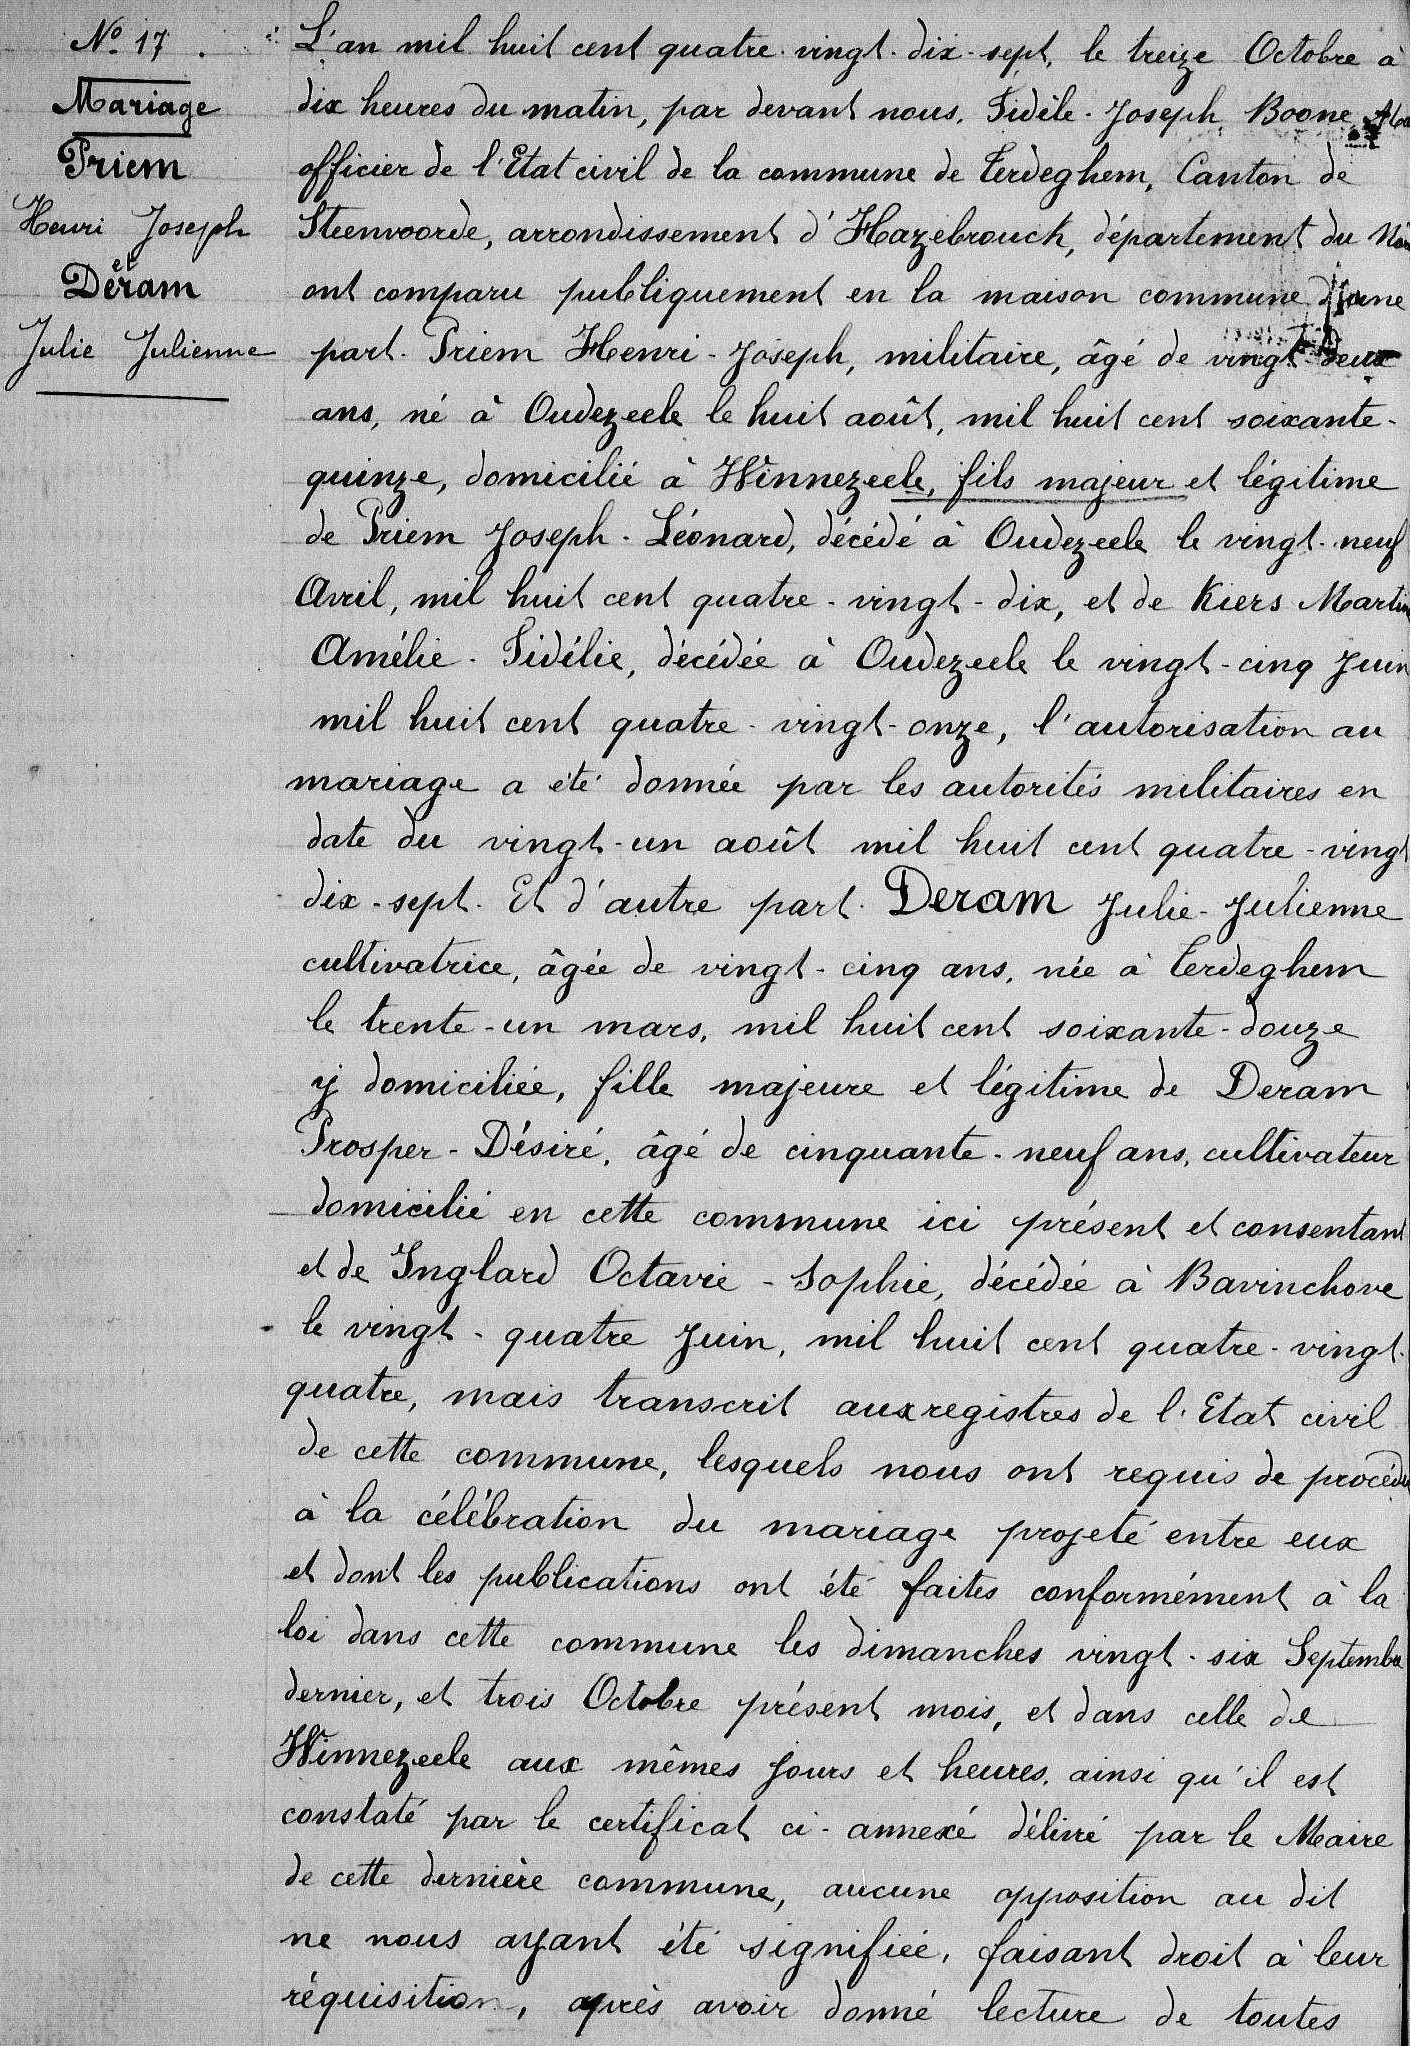 Nº 17.
Mariage
Priem
Henri Joseph
et
Deram
Julie Julienne
L'an mil huit cent quatre-vingt-dix-sept, le treize Octobre à
dix heures du matin, par devant nous, Fidèle-Joseph Boone,
officier de l'Etat civil de la commune de Terdeghem, Canton de
Steenvoorde, arrondissement d'Hazebrouck, département du Nord
ont comparu publiquement en la maison commune d'une
part. Priem Henri-Joseph, militaire, âgé de vingt deux
ans, né à Oudezeele le huit août, mil huit cent soixante-
quinze, domicilié à Winnezeele, fils majeur et légitime
de Priem Joseph-Léonard, décédé à Oudezeele le vingt-neuf
Avril, mil huit cent quatre-vingt-dix, et de Kiers
Amélie-Fidélie, décédée à Oudezeele le vingt-cinq Juin
mil huit cent quatre-vingt-onze, l'autorisation au
mariage a été donnée par les autorités militaires en
date du vingt-un août mil huit cent quatre-vingt
dix-sept. Et d'autre part. Deram Julie-Julienne
cultivatrice, âgée de vingt-cinq ans, née à Terdeghem
le trente-un mars, mil huit cent soixante-douze
y domiciliée, fille majeure et légitime de Deram
Prosper-Désiré, âgé de cinquante-neuf ans, cultivateur
domicilié en cette commune ici présent et consentant
et de Inglard Octavie-Sophie, décédée à Bavinchove
le vingt-quatre Juin, mil huit cent quatre-vingt-
quatre, mais transcrit aux registres de l'Etat civil
de cette commune, lesquels nous ont requis de procéder
à la célébration du mariage projeté entre eux
et dont les publications ont été faites conformément à la
loi dans cette commune les dimanches vingt-six Septembre
dernier, et trois Octobre présent mois, et dans celle de
Winnezeele aux mêmes jours et heures, ainsi qu'il est
constaté par le certificat ci-annexé délivré par le Maire
de cette dernière commune, aucune opposition au dit
ne nous ayant été signifiée, faisant droit à leur
réquisition, après avoir donné lecture de toutes